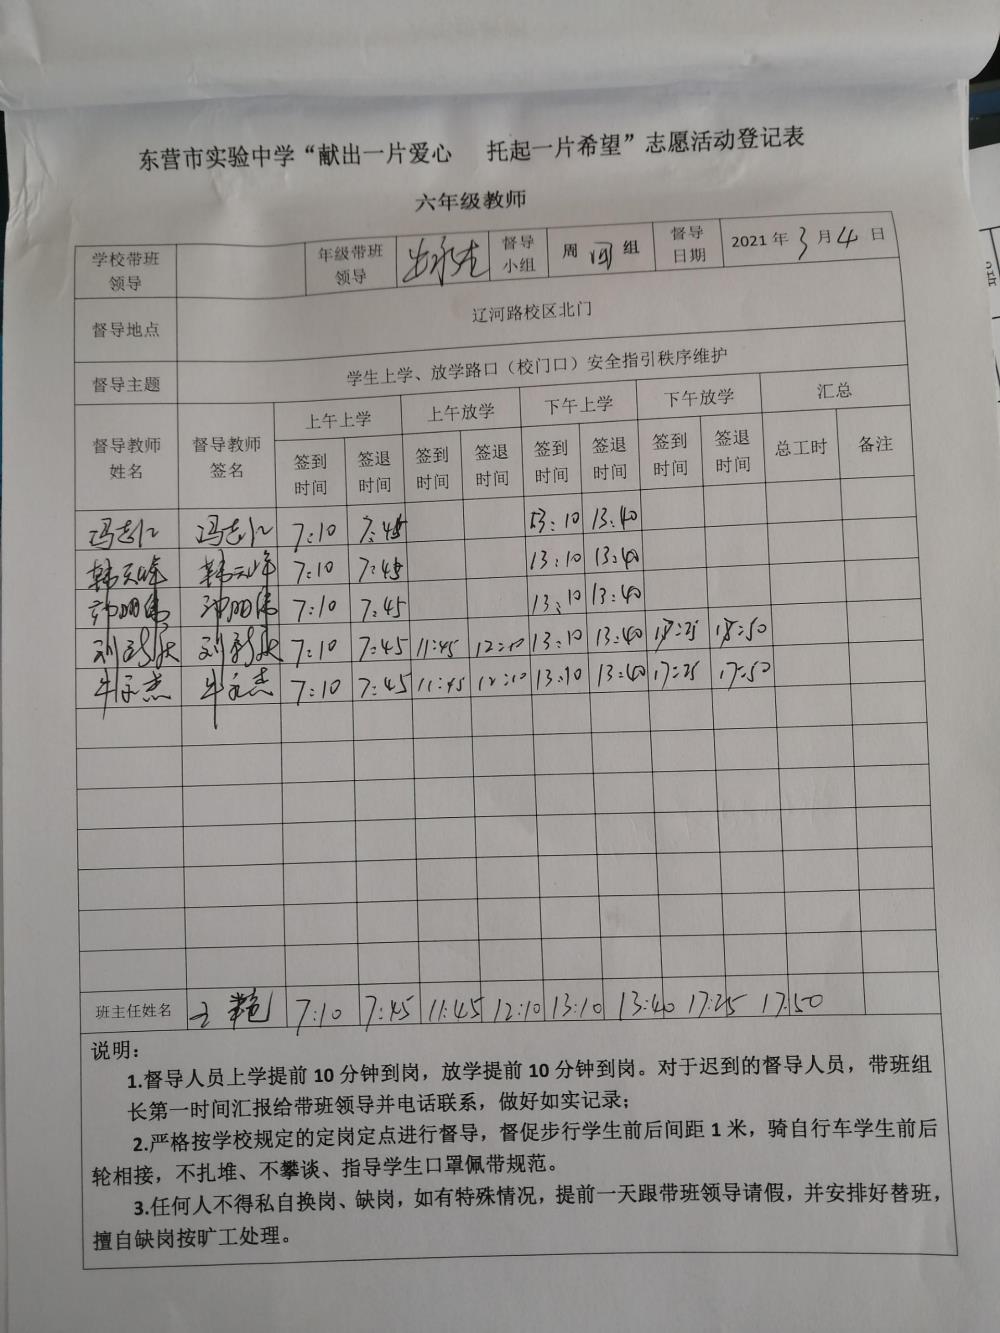 东营市实验中学“献出一片爱心 托起一片希望”志愿活动登记表
六年级教师
学校带班领导 年级带班领导 督导小组 周 四 组 督导日期 2021年 3 月 4 日
督导地点 辽河路校区北门
督导主题 学生上学、放学路口（校门口）安全指引秩序维护
督导教师姓名 督导教师签名 上午上学 上午放学 下午上学 下午放学 汇总
签到时间 签退时间 签到时间 签退时间 签到时间 签退时间 签到时间 签退时间 总工时 备注
冯志仁 冯志仁 7:10 7:45 13:10 13:40
韩云峰 韩云峰 7:10 7:45 13:10 13:40
7:10 7:45 13:10 13:40
7:10 7:45 11:45 12:10 13:10 13:40 17:25 17:50
7:10 7:45 11:45 12:10 13:10 13:40 17:25 17:50
班主任姓名 王艳 7:10 7:45 11:45 12:10 13:10 13:40 17:25 17:50
说明：
1.督导人员上学提前10分钟到岗，放学提前10分钟到岗。对于迟到的督导人员，带班组
长第一时间汇报给带班领导并电话联系，做好如实记录；
2.严格按学校规定的定岗定点进行督导，督促步行学生前后间距1米，骑自行车学生前后
轮相接，不扎堆、不攀谈、指导学生口罩佩带规范。
3.任何人不得私自换岗、缺岗，如有特殊情况，提前一天跟带班领导请假，并安排好替班，
擅自缺岗按旷工处理。